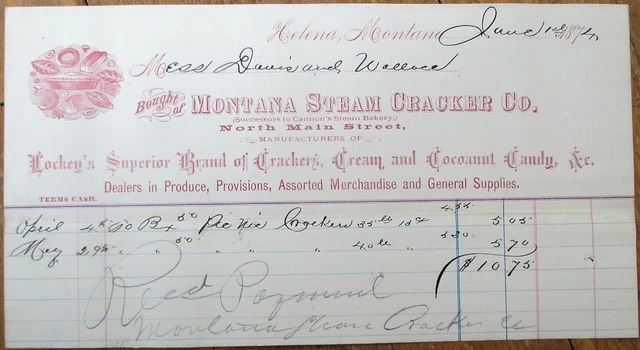 Helena, Montana, June 1st 1874
Mess Davis and Wallace
Bought of MONTANA STEAM CRACKER CO.
(Successors to Cannon's Steam Bakery,)
North Main Street,
MANUFACTURERS OF
Lockey's Superior Brand of Crackers, Cream and Cocoanut Candy, &c.
Dealers in Produce, Provisions, Assorted Merchandise and General Supplies.
TERMS CASH.
April 4th To Bx 50 Picnic Crackers 35 lb 13c 4.55 5 05
May 29th " " 50 " " " 40 lb " 5 20 5 70
$10 75
Recd Payment
Montana Steam Cracker Co